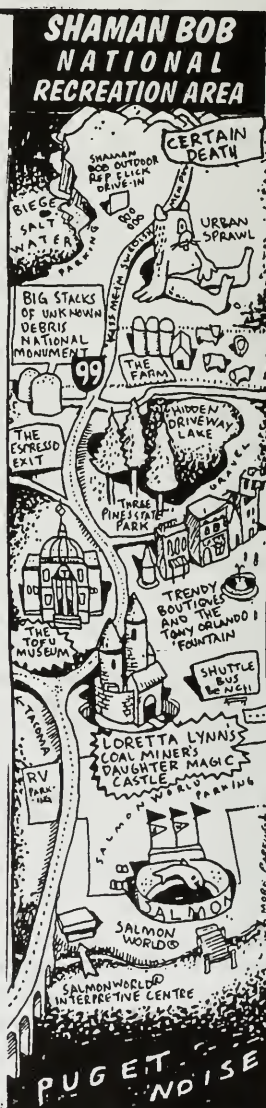 SHAMAN BOB
NATIONAL
RECREATION AREA
CERTAIN
DEATH
SHAMAN
BOB OUTDOOR
REP FLICK
DRIVE-IN
BIEGE
SALT
WATER
PARKING
URBAN
SPRAWL
BIG STACKS
OF UNKNOWN
DEBRIS
NATIONAL
MONUMENT
99
THE
FARM
HIDDEN
DRIVEWAY
LAKE
THE
ESPRESSO
EXIT
GRAVEL
THREE
PINES STATE
PARK
TRENDY
BOUTIQUES
AND THE
TONY ORLANDO
FOUNTAIN
THE
TOFU
MUSEUM
SHUTTLE
BUS
BENCH
TACOMA
LORETTA LYNNS
COAL MINER'S
DAUGHTER MAGIC
CASTLE
RV
PARK-
ING
SALMON WORLD PARKING
SALMON
SALMON
WORLD®
SALMONWORLD®
INTERPRETIVE CENTRE
PUGET
NOISE